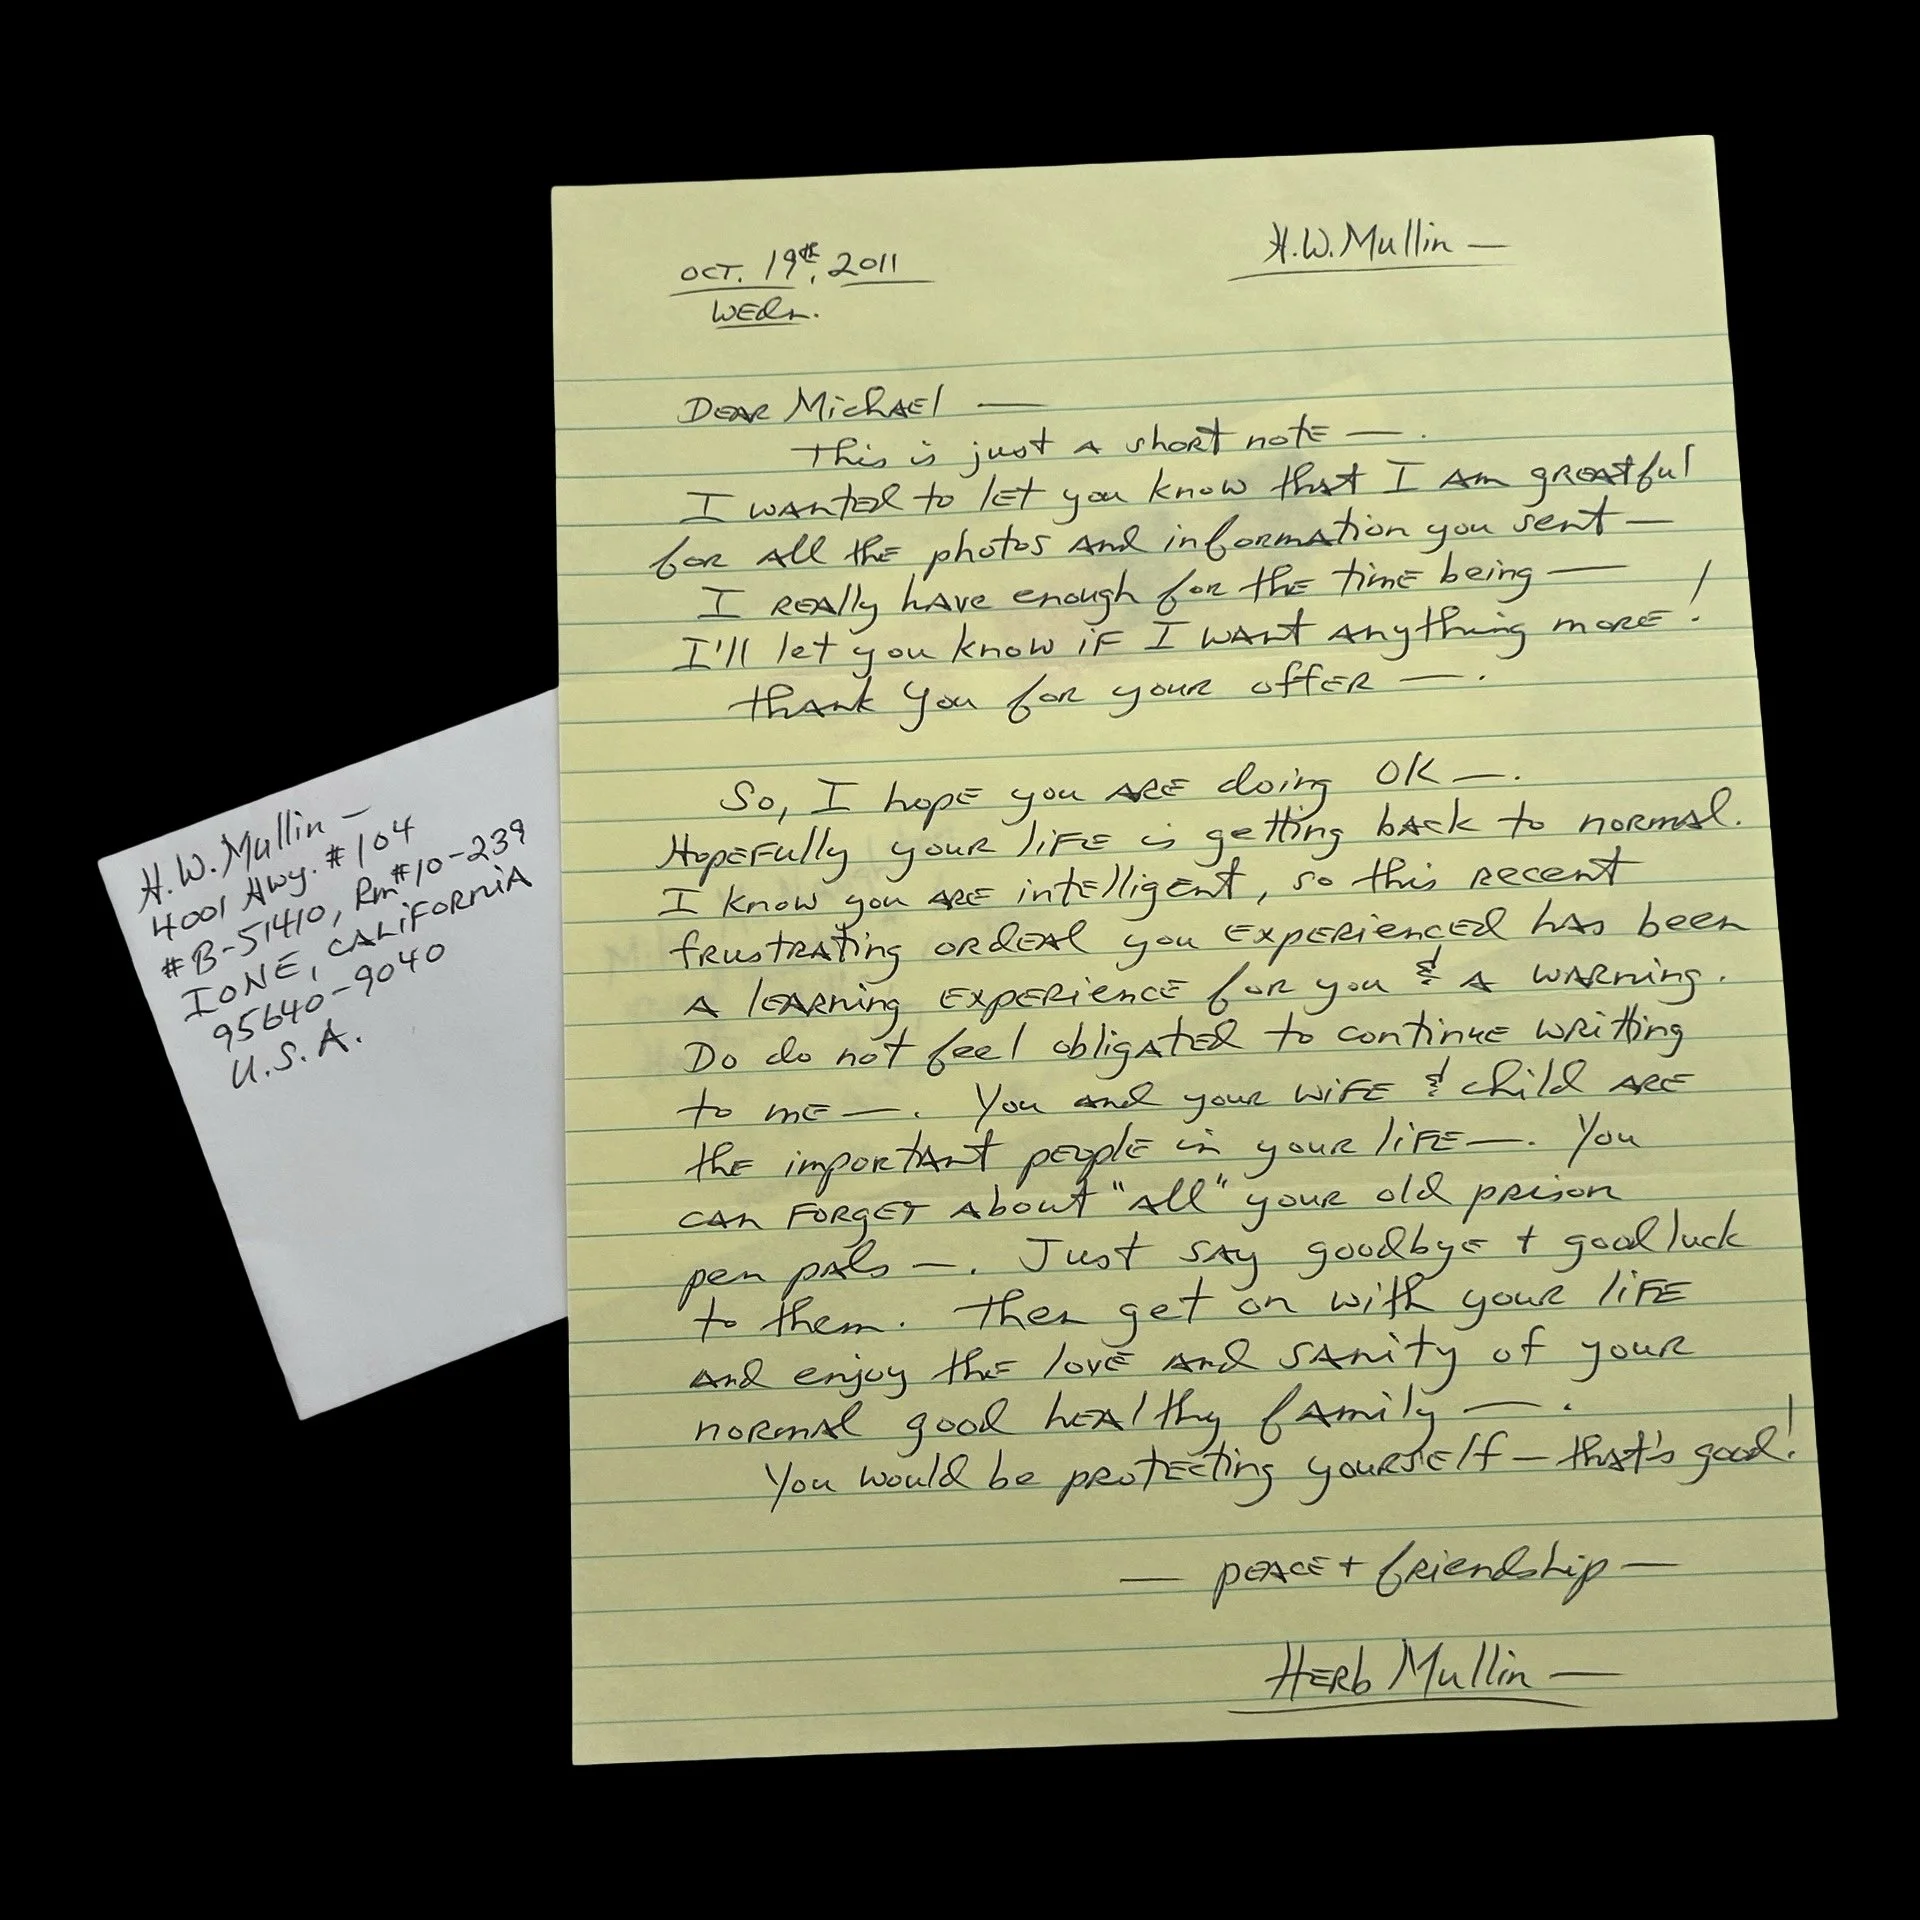 H.W. Mullin —
4001 Hwy. #104
#B-51410, Rm #10-239
IONE, CALiFORNiA
95640-9040
U.S.A.
OCT. 19th, 2011
WEdn.
H.W. Mullin —
DEAR MichAEl —
This is just A shoRt notE —.
I wAntEd to lEt you know thAt I Am gREAtful
foR All thE photos And infoRmAtion you sent —
I REAlly hAvE enough foR thE timE being —
I'll let you know iF I wAnt Anything moRE!
thAnk You foR youR offER —.
So, I hopE you ARE doing OK —.
HopEFully youR liFE is getting bAck to noRmAl.
I know you ARE intElligEnt, so this REcEnt
fRustRAting oRdEAl you ExpERiencEd hAs bEEn
A lEARning ExpERiencE foR you & A wARning.
Do do not feel obligAtEd to continuE wRitting
to mE —. You And youR wiFE & child ARE
thE impoRtAnt peoplE in youR liFE —. You
cAn FoRgEt About "All" youR old pRison
pen pAls —. Just sAy goodbyE + good luck
to them. Then get on with youR liFE
And enjoy thE lovE And sAnity of youR
noRmAl good hEAlthy fAmily —.
You would be pRotEcting youRsElf — thAt's good!
— pEAcE + fRiendship —
HERb Mullin —